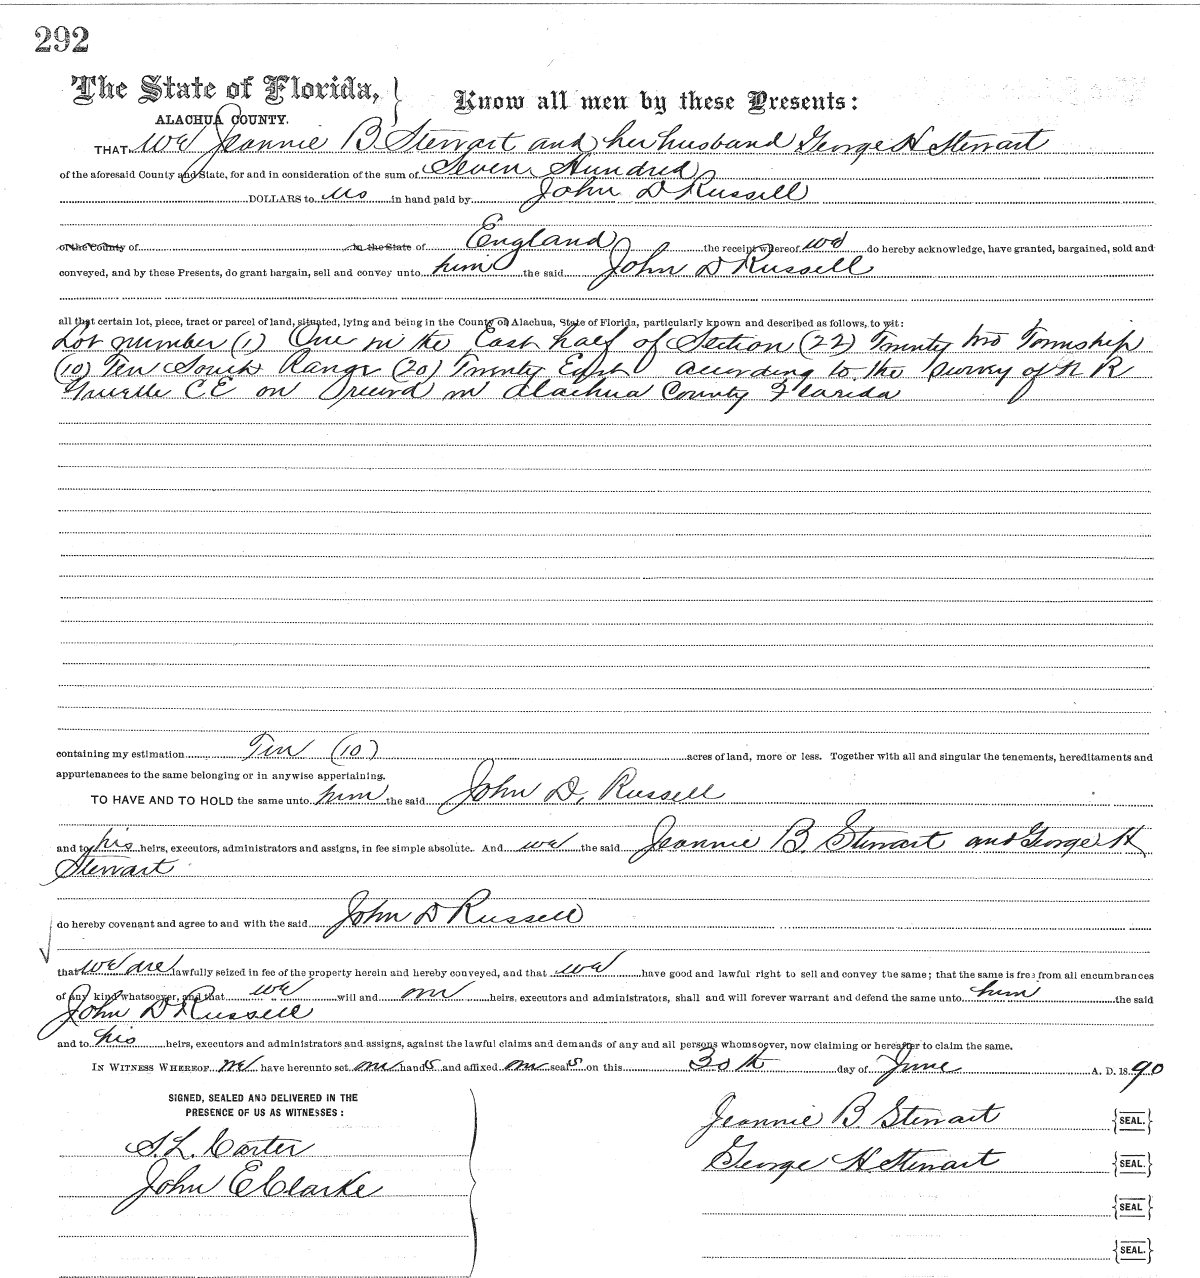 292
The State of Florida, } Know all men by these Presents:
ALACHUA COUNTY.
THAT we Jeannie B Stewart and her husband George H Stewart
of the aforesaid County and State, for and in consideration of the sum of Seven Hundred
DOLLARS to us in hand paid by John D Russell
of the County of in the State of England the receipt whereof we do hereby acknowledge, have granted, bargained, sold and
conveyed, and by these Presents, do grant bargain, sell and convey unto him the said John D Russell
all that certain lot, piece, tract or parcel of land, situated, lying and being in the County of Alachua, State of Florida, particularly known and described as follows, to wit:
Lot number (1) One in the East half of Section (22) Twenty two Township
(10) Ten South Range (20) Twenty East according to the survey of N R
CE on record in Alachua County Florida
containing my estimation Ten (10) acres of land, more or less. Together with all and singular the tenements, hereditaments and
appurtenances to the same belonging or in anywise appertaining.
TO HAVE AND TO HOLD the same unto him the said John D. Russell
and to his heirs, executors, administrators and assigns, in fee simple absolute. And we the said Jeannie B. Stewart and George H
Stewart
do hereby covenant and agree to and with the said John D Russell
that we are lawfully seized in fee of the property herein and hereby conveyed, and that we have good and lawful right to sell and convey the same; that the same is free from all encumbrances
of any kind whatsoever, and that we will and our heirs, executors and administrators, shall and will forever warrant and defend the same unto him the said
John D Russell
and to his heirs, executors and administrators and assigns, against the lawful claims and demands of any and all persons whomsoever, now claiming or hereafter to claim the same.
IN WITNESS WHEREOF we have hereunto set our hands and affixed our seals on this 30th day of June A. D. 1890
SIGNED, SEALED AND DELIVERED IN THE
PRESENCE OF US AS WITNESSES:
Jeannie B Stewart {SEAL.}
S. L. Carter
George H Stewart {SEAL.}
John E Clarke
{SEAL}
{SEAL.}